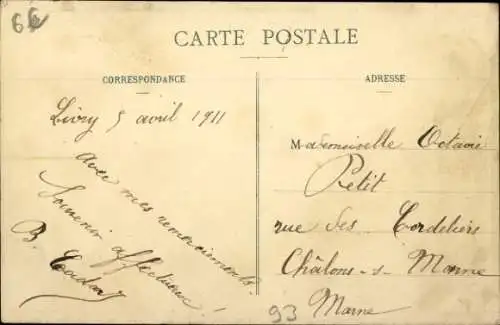 66
CARTE POSTALE
CORRESPONDANCE
ADRESSE
Livry 5 avril 1911
Avec mes remerciements.
Souvenir affectueux!
B.
Mademoiselle Octavie
Petit
rue des Cordeliers
Châlons-s-Marne
Marne
93